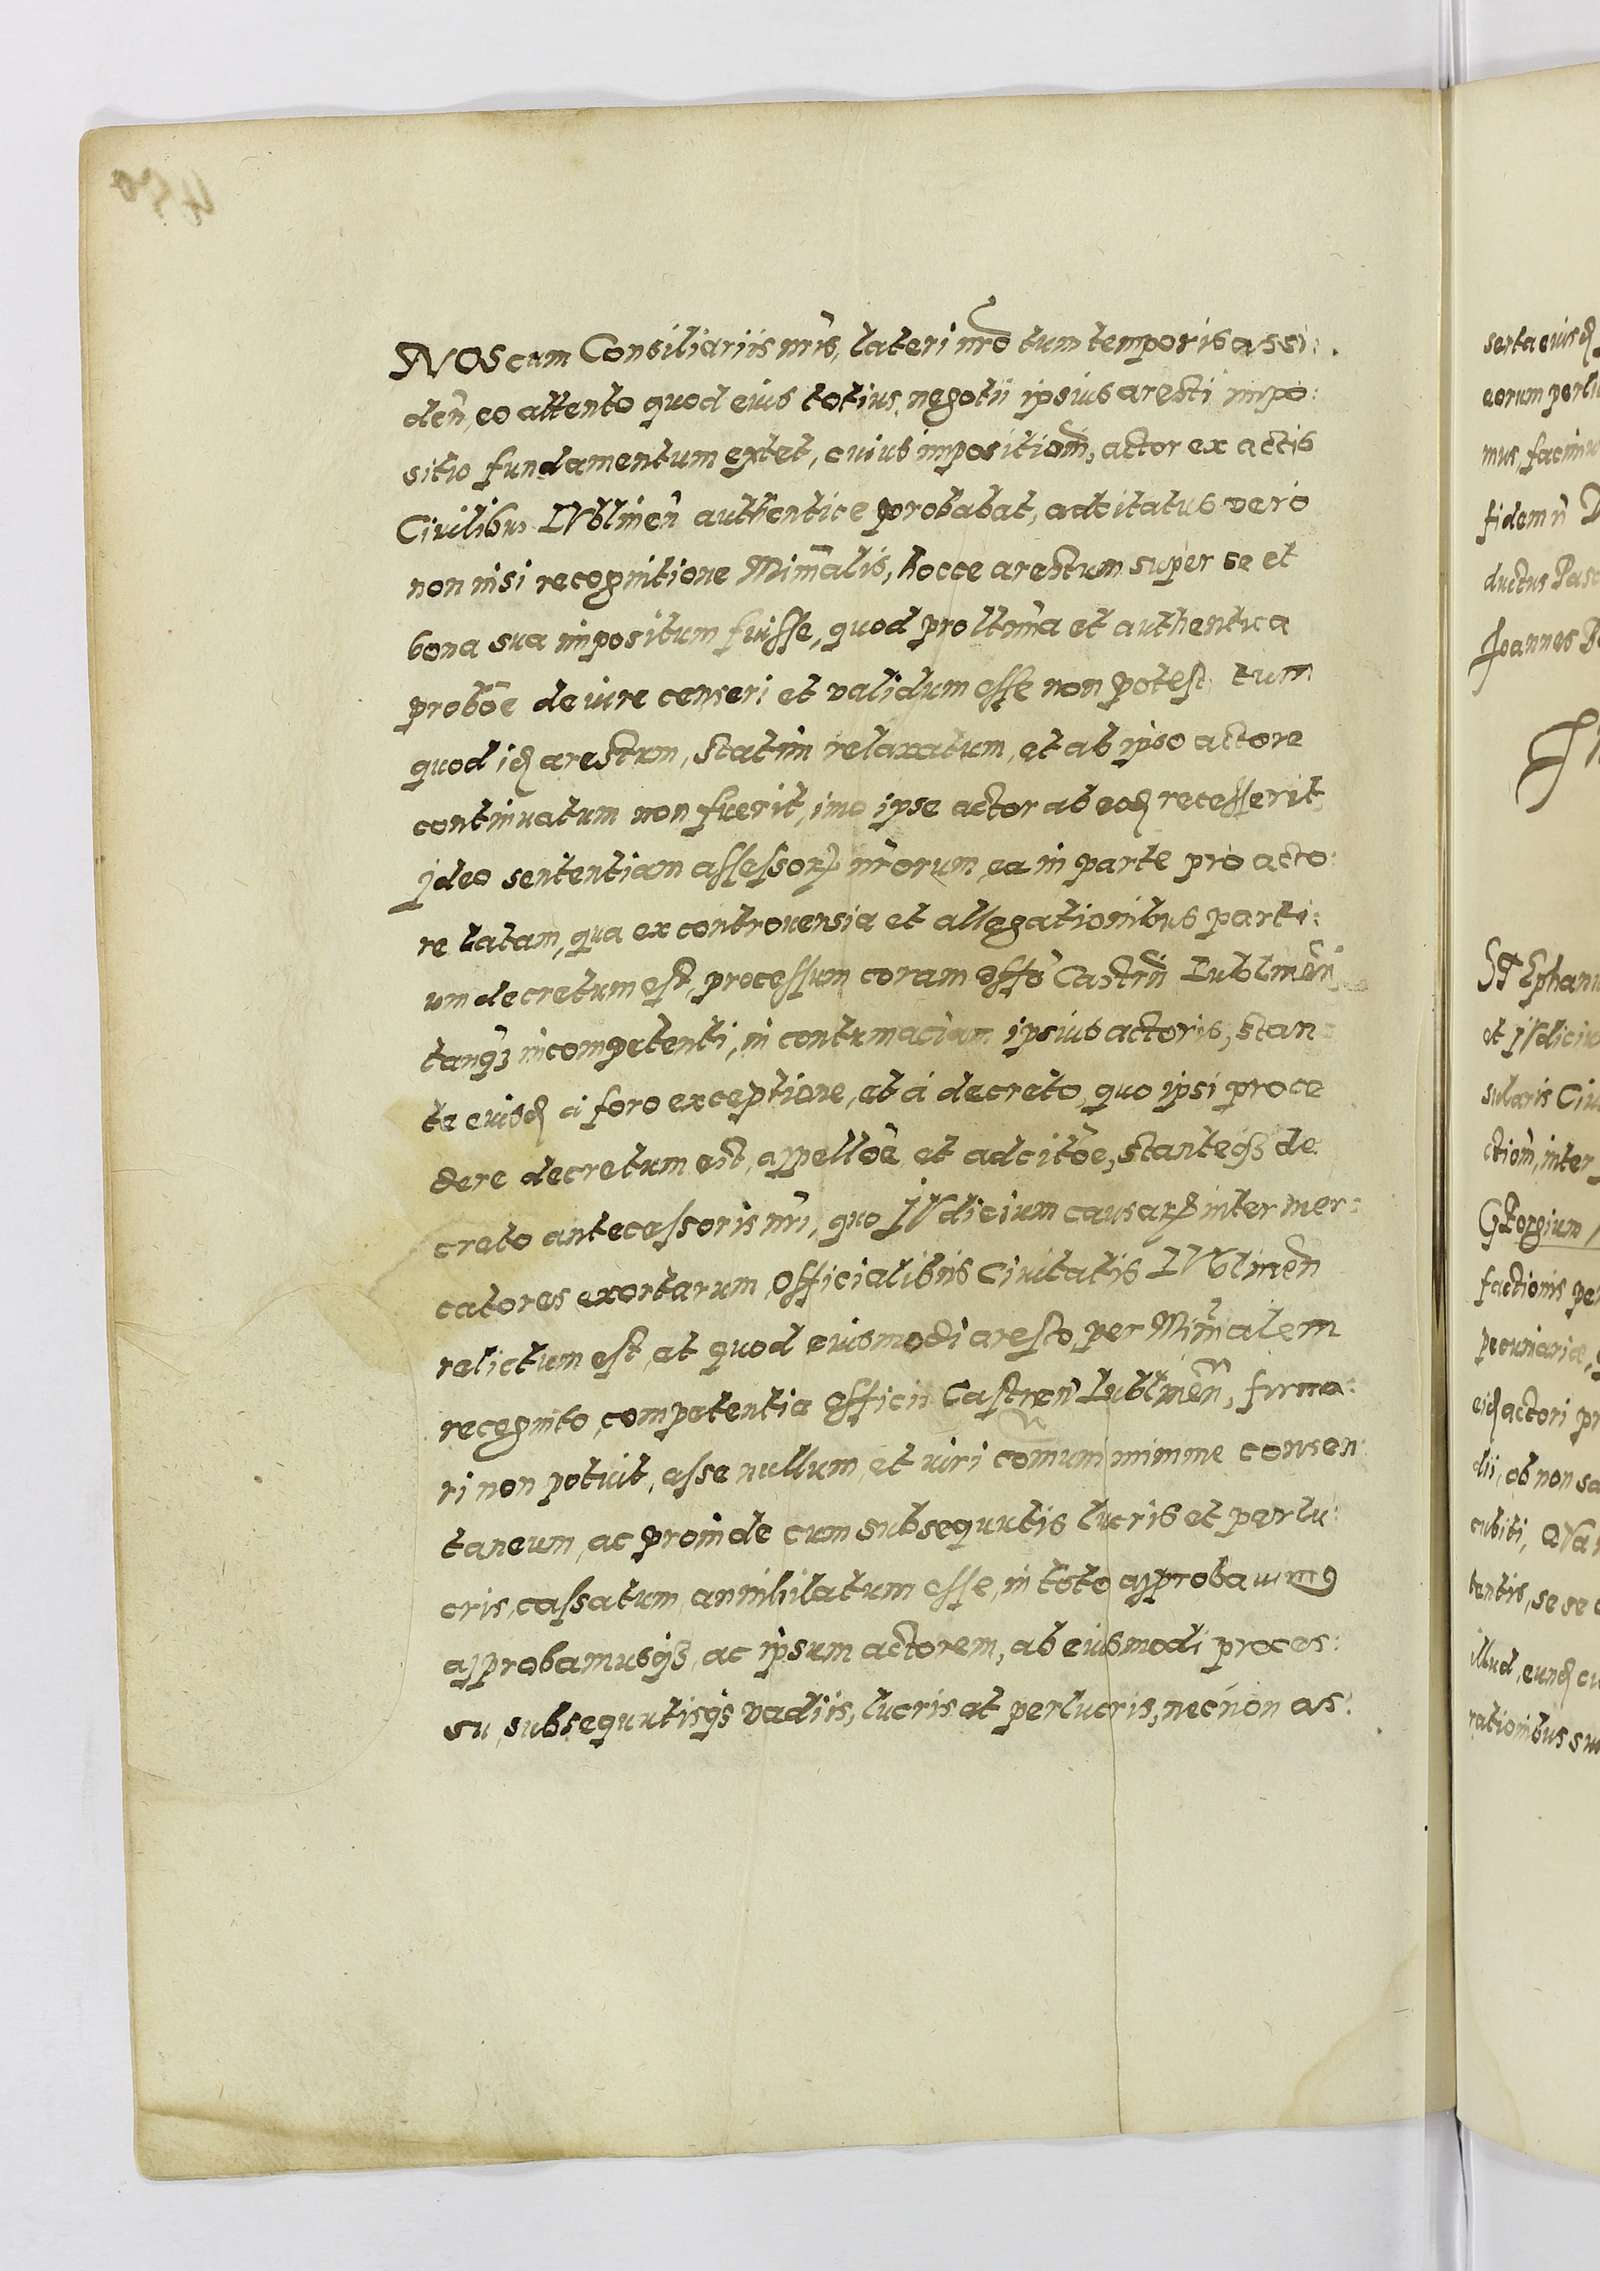 NOS cum Consiliariis nr̃is, lateri nr̃o tum temporis assi:
den̂, eo attento quod eius totius negotii ipsius aresti impo:
sitio fundamentum extet, cuius impositiom̃, actor ex actis
Ciuilibus LVblinen̂ authentice probabat, adcitatus vero
non nisi recognitione Minr̃alis, hocce arestum super se et
bona sua impositum fuisse, quod pro ltĩma et authentica
probõe de iure censeri et validum esse non potest, tum
quod iḍ arestum, statim relaxatum, et ab ipso actore
continuatum non fuerit, imo ipse actor ab eoḍ recesserit,
jdeo sententiam assessorꝝ nr̃orum, ea in parte pro acto:
re latam, qua ex controuersia et allegationibus parti:
um decretum est, processum coram offõ Castrn̂ Lublinen̂
tanqꝫ incompetenti, in contumaciam ipsius actoris, stan:
te eiusḍ a foro exceptione, et à decreto, quo ipsi proce
dere decretum est, appellõe et adcitõe, stanteqꝫ de
creto antecessoris nr̃i, quo JVdicium causarꝝ inter mer:
catores exortarum, officialibus Ciuitatis LVblinen̂
relictum est, et quod eiusmodi aresto, per Minr̃alem
recognito, competentia officii Castren̂ Lublinen̂, firma:
ri non potuit, esse nullum, et iuri comuni minime consen:
taneum, ac proinde cum subsequutis lucris et perlu:
cris, cassatum, annihilatum esse, in toto approbauimꝰ
approbamusqꝫ, ac ipsum actorem, ab eiusmodi proces:
su, subsequutisqꝫ vadiis, lucris et perlucris, necnon as:
sertaeiusḍ
mus, facimu
ductus Pasc
Joannes
STEphan
et JVdiciu
sularis Ciu
ctiom̃, inter
GEorgium
factionis per
pecuniariæ,
eiḍ actori pr
dii, ob non sa
cubiti,
tentis, se se
illud, eunḍ cu
rationibus su